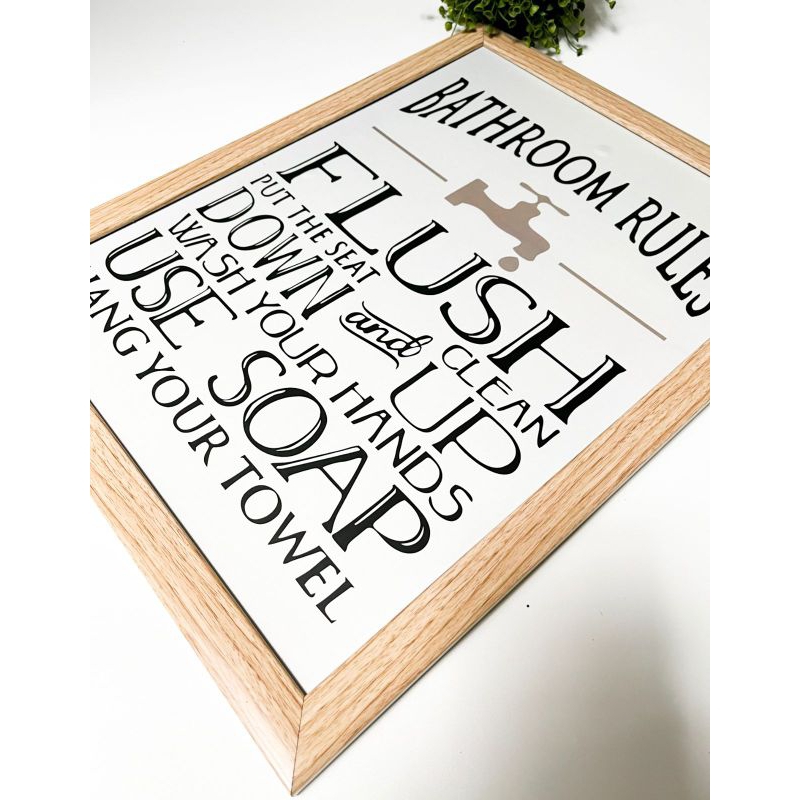 BATHROOM RULES
FLUSH
PUT THE SEAT
DOWN and CLEAN UP
WASH YOUR HANDS
USE SOAP
HANG YOUR TOWEL